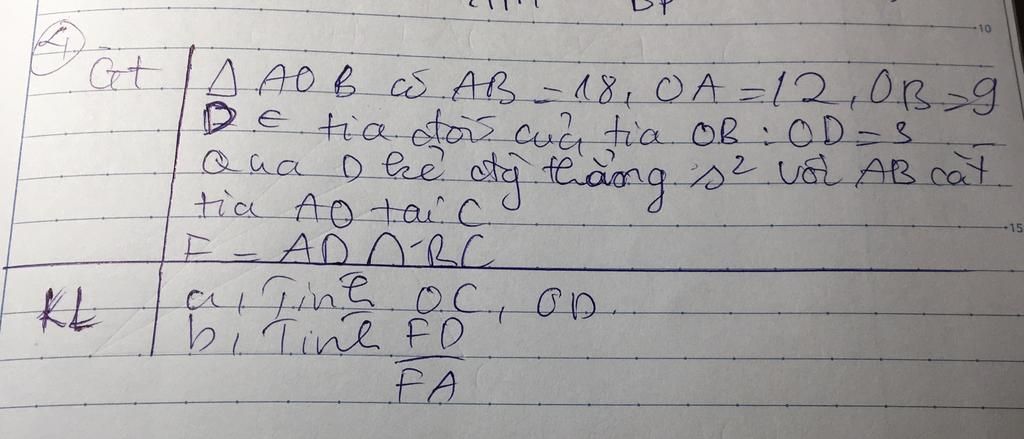 4
Gt
Δ AOB có AB = 18, OA = 12, OB = 9
D ∈ tia đối của tia OB : OD = 3
Qua D kẻ đg thẳng s² với AB cắt
tia AO tại C
F = AD ∩ BC
KL
a, Tính OC, OD.
b, Tính FD
FA
10
15